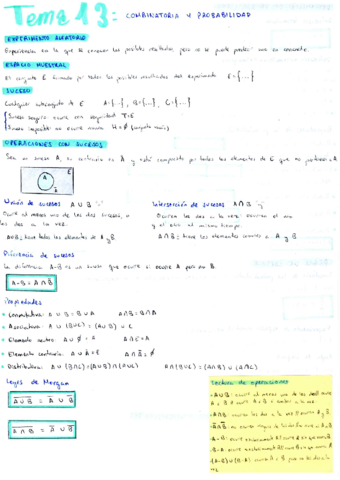 Tema 13: COMBINATORIA Y PROBABILIDAD
EXPERIMENTO ALEATORIO
Experimento en el que se conocen los posibles resultados pero no se puede predecir uno en concreto.
ESPACIO MUESTRAL
El conjunto E formado por todos los posibles resultados del experimento E={...}
SUCESO
Cualquier subconjunto de E A={...}, B={...}, C={...}
Suceso seguro ocurre con seguridad
Suceso imposible no ocurre nunca
OPERACIONES CON SUCESOS
Sea un suceso A, su contrario es Ā y está compuesto por todos los elementos de E que no pertenecen a A
E
A
Unión de sucesos A∪B
Ocurre al menos uno de los dos sucesos, o
los dos a la vez.
A∪B: tiene todos los elementos de A y B
Intersección de sucesos A∩B
Ocurren los dos a la vez: ocurren el uno
y el otro al mismo tiempo.
A∩B: tiene los elementos comunes a A y B
Diferencia de sucesos
La diferencia A-B es un suceso que ocurre si ocurre A pero no B.
A-B = A∩B̄
Propiedades
• Conmutativa: A∪B = B∪A A∩B = B∩A
• Asociativa: A∪(B∪C) = (A∪B)∪C
• Elemento neutro: A∪∅ = A A∩E = A
• Elemento contrario: A∪Ā = E A∩Ā = ∅
• Distributiva: A∪(B∩C) = (A∪B)∩(A∪C) A∩(B∪C) = (A∩B)∪(A∩C)
Leyes de Morgan
Lectura de operaciones
·A∪B: ocurre al menos uno de los dos
·A∩B: ocurren los dos a la vez
·A-B: ocurre exclusivamente A
·B-A: ocurre exclusivamente B
·(A-B)∪(B-A): ocurre A o B pero no los dos a la
vez